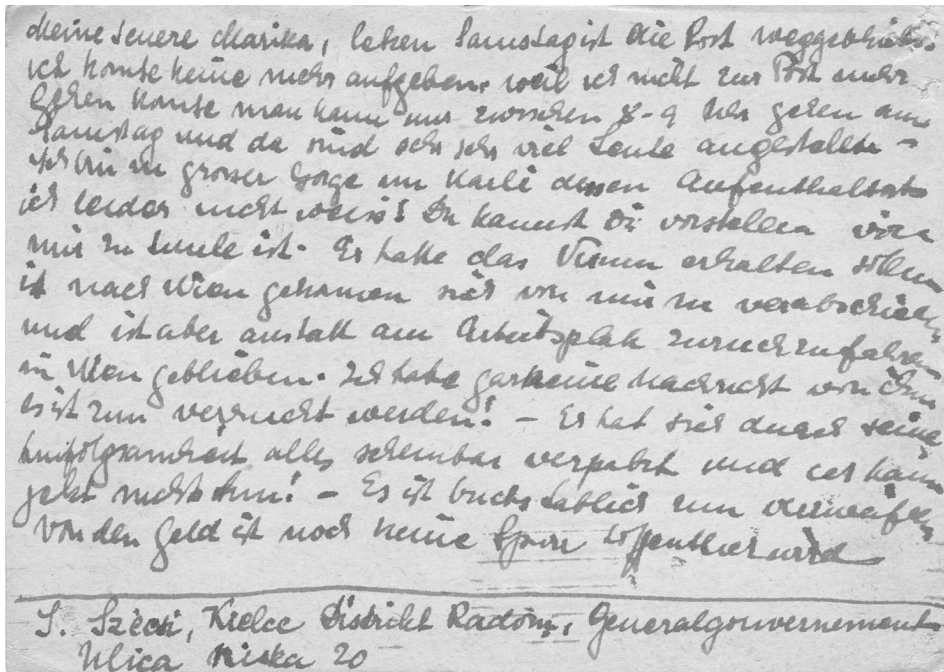 Meine teuere Marika, letzen Samstag ist die Post weggeblieben
ich konnte keine mehr aufgeben, weil ich nicht zur Post mehr
gehen konnte man kann nur zwischen 8-9 Uhr gehen am
Samstag und da sind sehr sehr viel Leute angestellt -
Ich bin in grosser Sorge um Karli dessen Aufenthaltsort
ich leider nicht weiss! Du kannst Dir vorstellen wie
mir zu Mute ist. Er hatte das Visum erhalten sollen
ist nach Wien gekommen sich von mir zu verabschieden
und ist aber anstatt am Arbeitsplatz zurückzufahren
in Wien geblieben. Ich habe gar keine Nachricht von ihm
es ist zum verrückt werden! - Er hat sich durch seine
Unfolgsamkeit alles scheinbar verpatzt und ich kann
jetzt nichts tun! - Es ist buchstablich zum verzweifeln
Von den Geld ist noch keine Spur hoffentlich wird
S. Szécsi, Kielce Distrikt Radom, Generalgouvernement
Ulica Niska 20